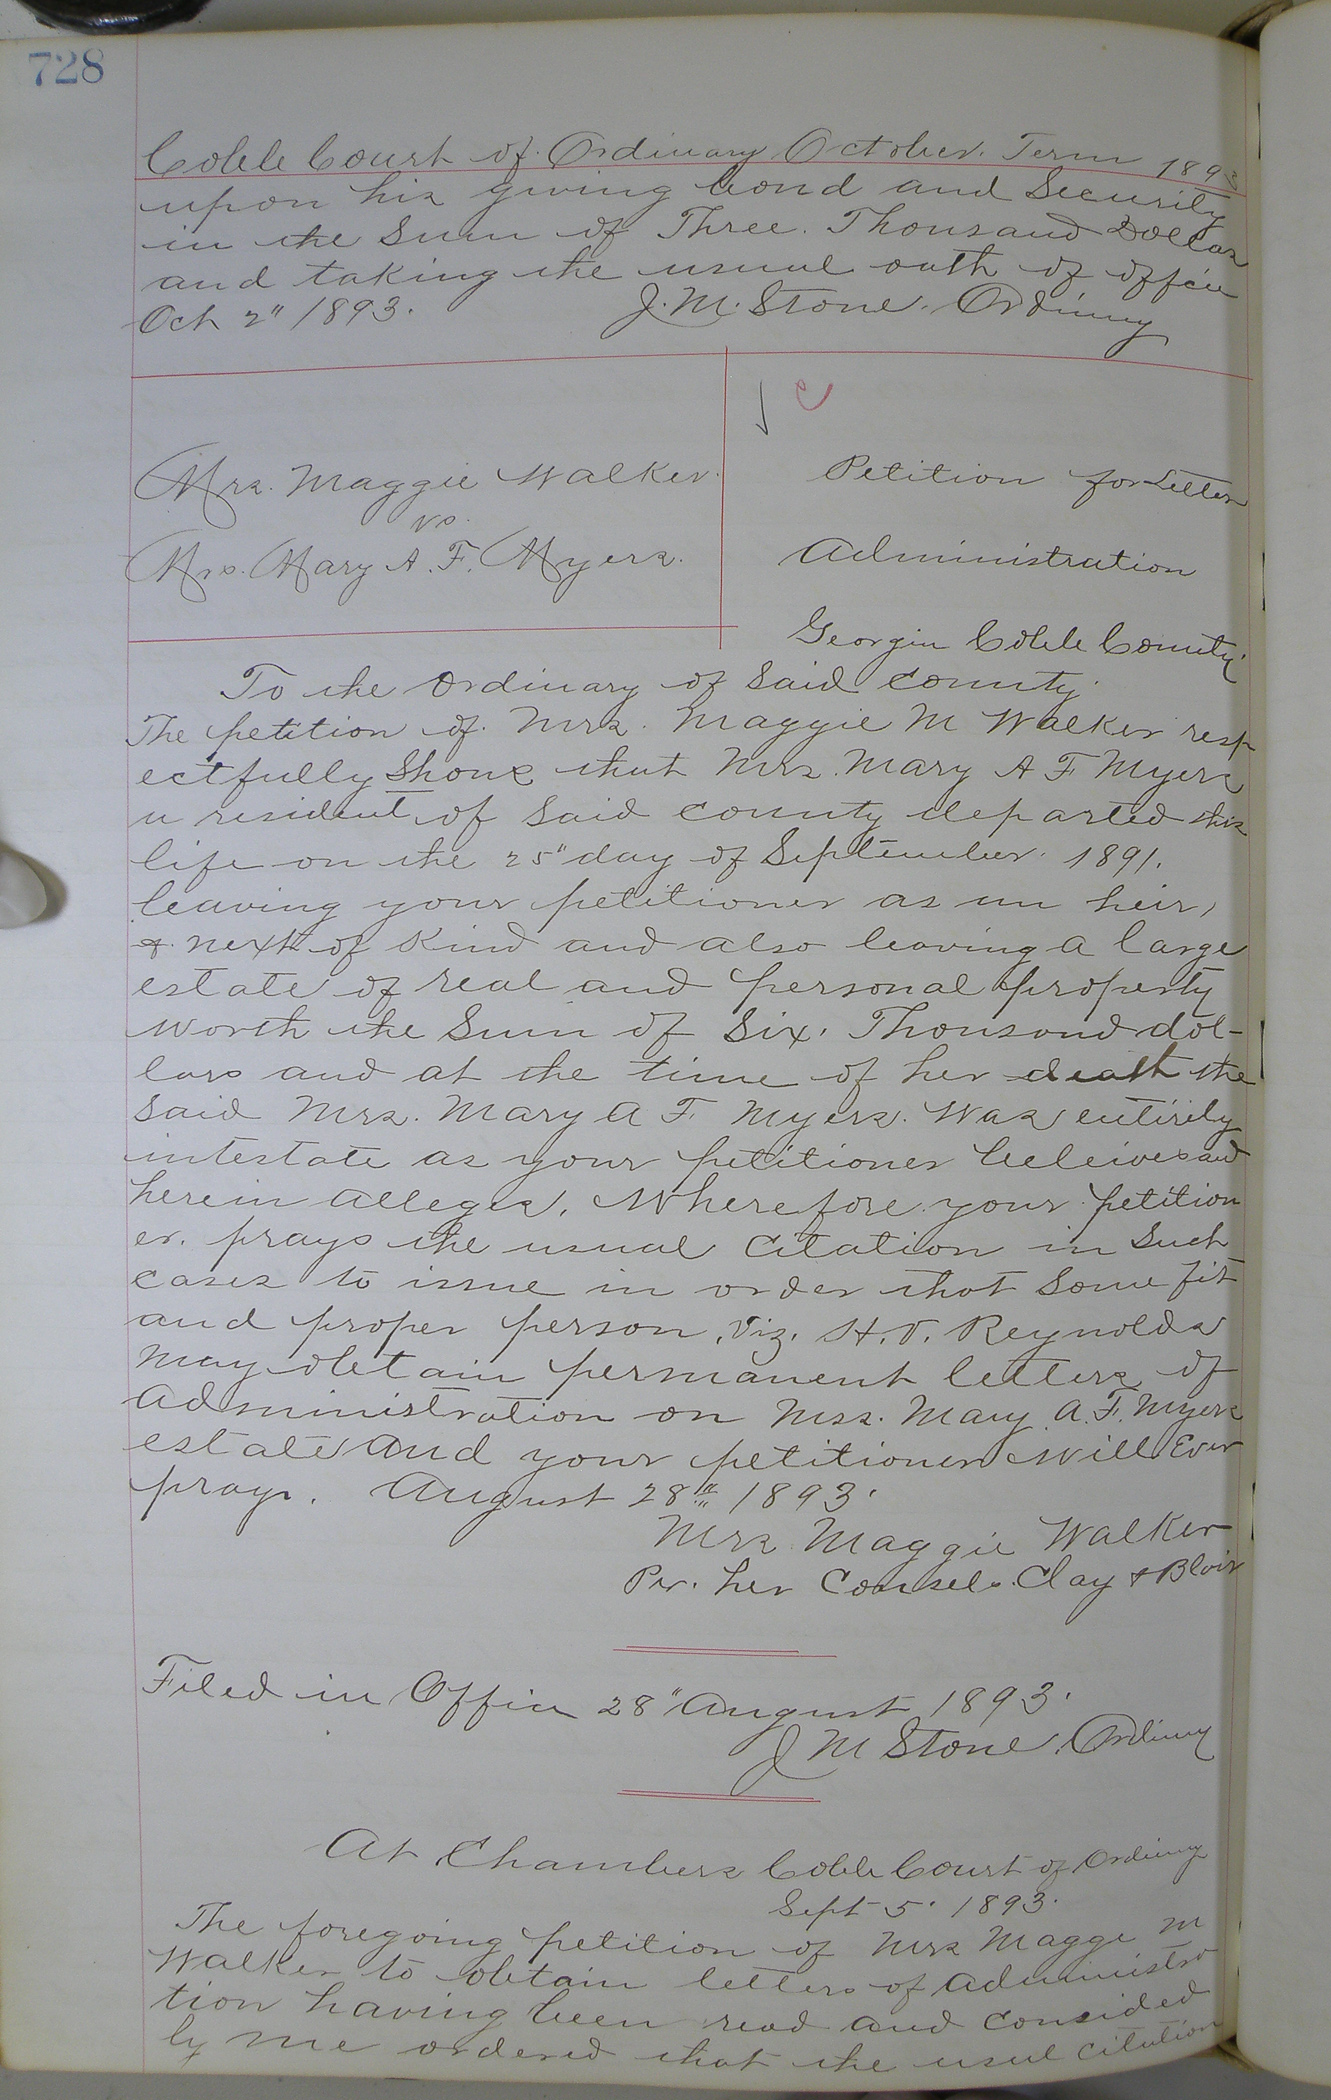 728
Cobb Court of Ordinary October. Term 1893
upon his giving bond and Security
in the Sum of Three. Thousand Dollars
and taking the usual oath of office
Oct 2" 1893. J. M. Stone. Ordinary
Mrs. Maggie Walker.
vs.
Mrs. Mary A. F. Myers.
Petition for Letters
Administration
Georgia Cobb County
To the Ordinary of Said County.
The petition of Mrs. Maggie M Walker resp
ectfully Shows that Mrs. Mary A F Myers
a resident of Said County departed this
life on the 25" day of September. 1891.
leaving your petitioner as an heir,
& next of Kind and also leaving a large
estate of real and personal property
worth the Sum of Six. Thousand dol-
lars and at the time of her death the
Said Mrs. Mary A F Myers. Was entirely
intestate as your petitioner beleives and
herein alleges. Wherefore your petition
er. prays the usual Citation in Such
cases to issue in order that Some fit
and proper person, Viz. H. V. Reynolds
may obtain permanent letters of
Administration on Mrs. Mary A. F. Myers
estate and your petitioner Will Ever
pray. August 28th 1893.
Mrs Maggie Walker
Per. her Counsel. Clay & Blair
Filed in Office 28" August 1893.
J M Stone. Ordinary
At Chambers Cobb Court of Ordinary
Sept 5. 1893.
The foregoing petition of Mrs Magge M
Walker to obtain letters of Administra
tion having been read and Consided
by me ordered that the usul citation